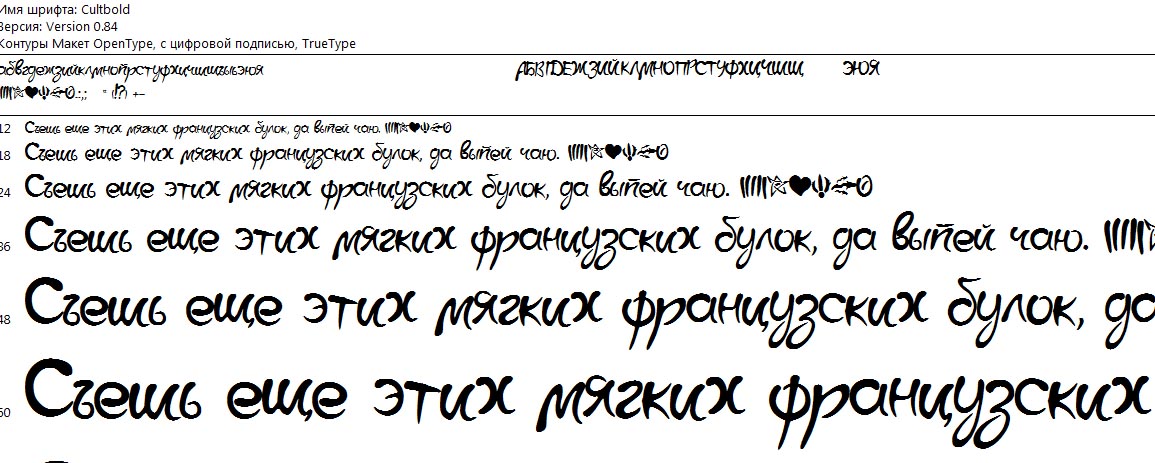 Имя шрифта: Cultbold
Версия: Version 0.84
Контуры Макет OpenType, с цифровой подписью, TrueType
абвгдежзийклмнопрстуфхцчшщъыьэюя АБВГДЕЖЗИЙКЛМНОПРСТУФХЦЧШЩ ЭЮЯ
.:,; " (!?) +-
12 Съешь еще этих мягких французских булок, да выпей чаю.
18 Съешь еще этих мягких французских булок, да выпей чаю.
24 Съешь еще этих мягких французских булок, да выпей чаю.
36 Съешь еще этих мягких французских булок, да выпей чаю.
48 Съешь еще этих мягких французских булок, да
60 Съешь еще этих мягких французских